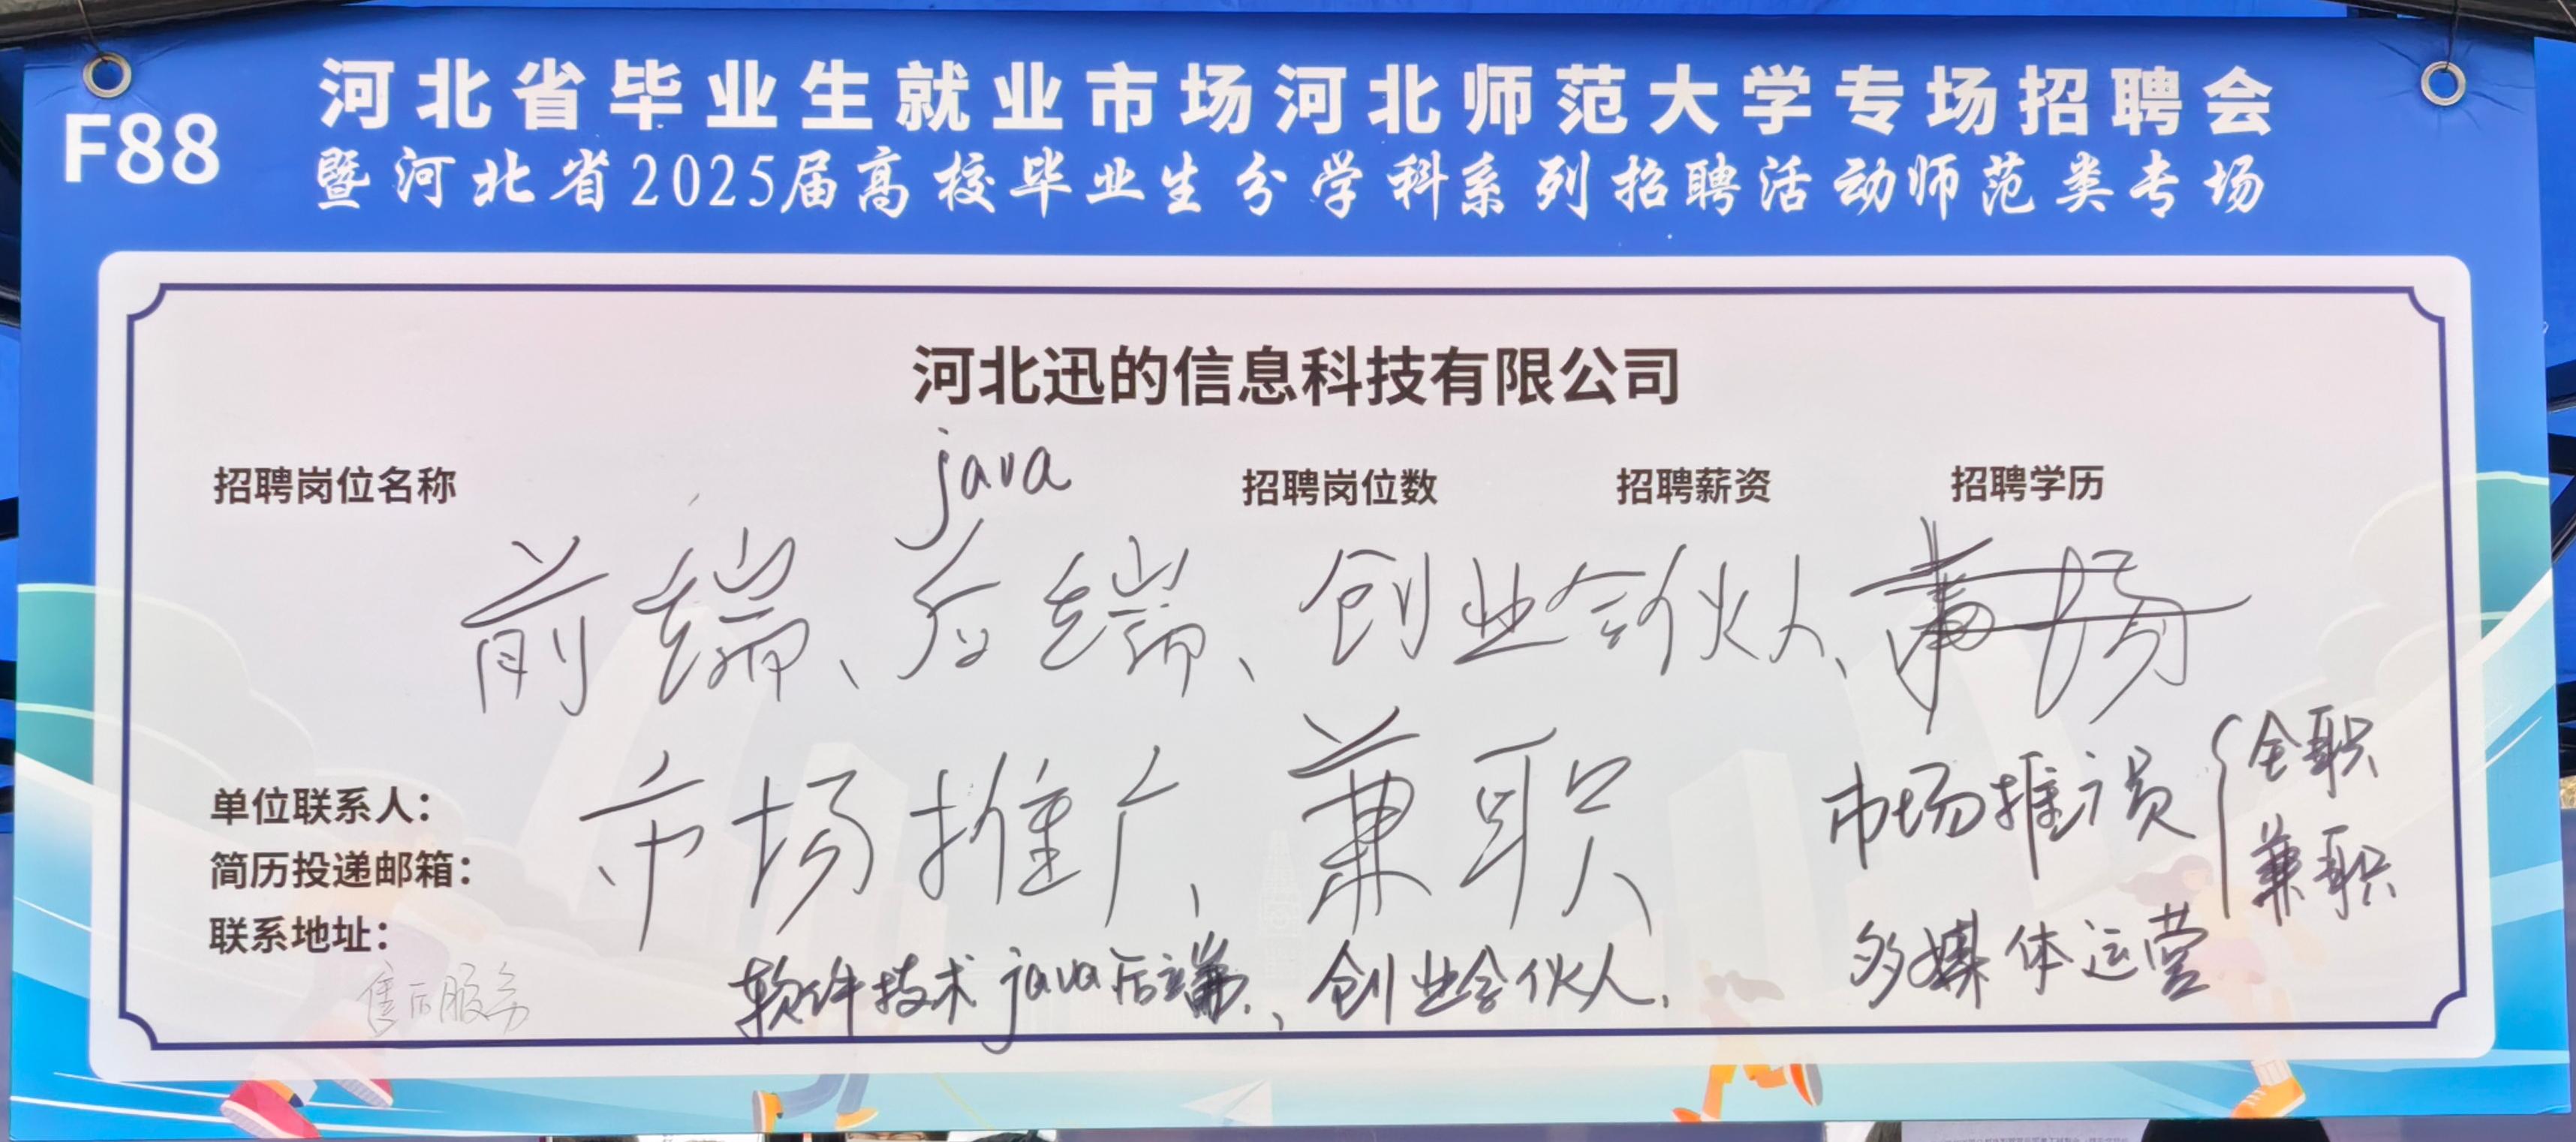 河北省毕业生就业市场河北师范大学专场招聘会
F88
暨河北省2025届高校毕业生分学科系列招聘活动师范类专场
河北迅的信息科技有限公司
java
招聘岗位名称 招聘岗位数 招聘薪资 招聘学历
前端、后端、创业合伙人、
市场推广、兼职
市场推广员 全职 兼职
单位联系人：
简历投递邮箱：
联系地址：
售后服务
软件技术java后端、创业合伙人、
多媒体运营